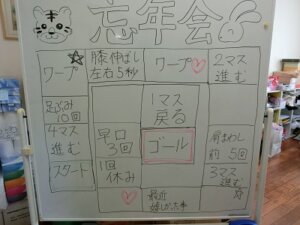 忘年会
ワープ
膝伸ばし
左右5秒
ワープ
2マス
進む
足ぶみ
10回
1マス
戻る
4マス
進む
早口
3回
ゴール
肩まわし
前 5回
スタート
1回
休み
3マス
進む
最近